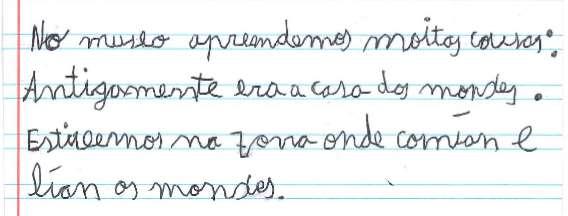 No museo aprendemos moitas cousas:
Antigamente era a casa dos mondes.
Estivemos na zona onde comían e
lían os mondes.